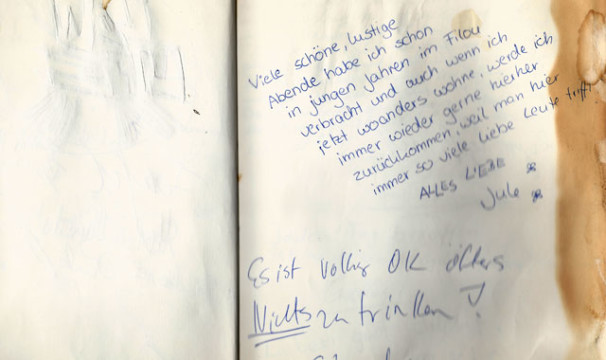 Viele schöne, lustige
Abende habe ich schon
in jungen Jahren im Filou
verbracht und auch wenn ich
jetzt woanders wohne, werde ich
immer wieder gerne hierher
zurückkommen, weil man hier
immer so viele liebe Leute trifft
ALLES LIEBE
Jule
Es ist völlig OK öfters
Nichts zu trinken!